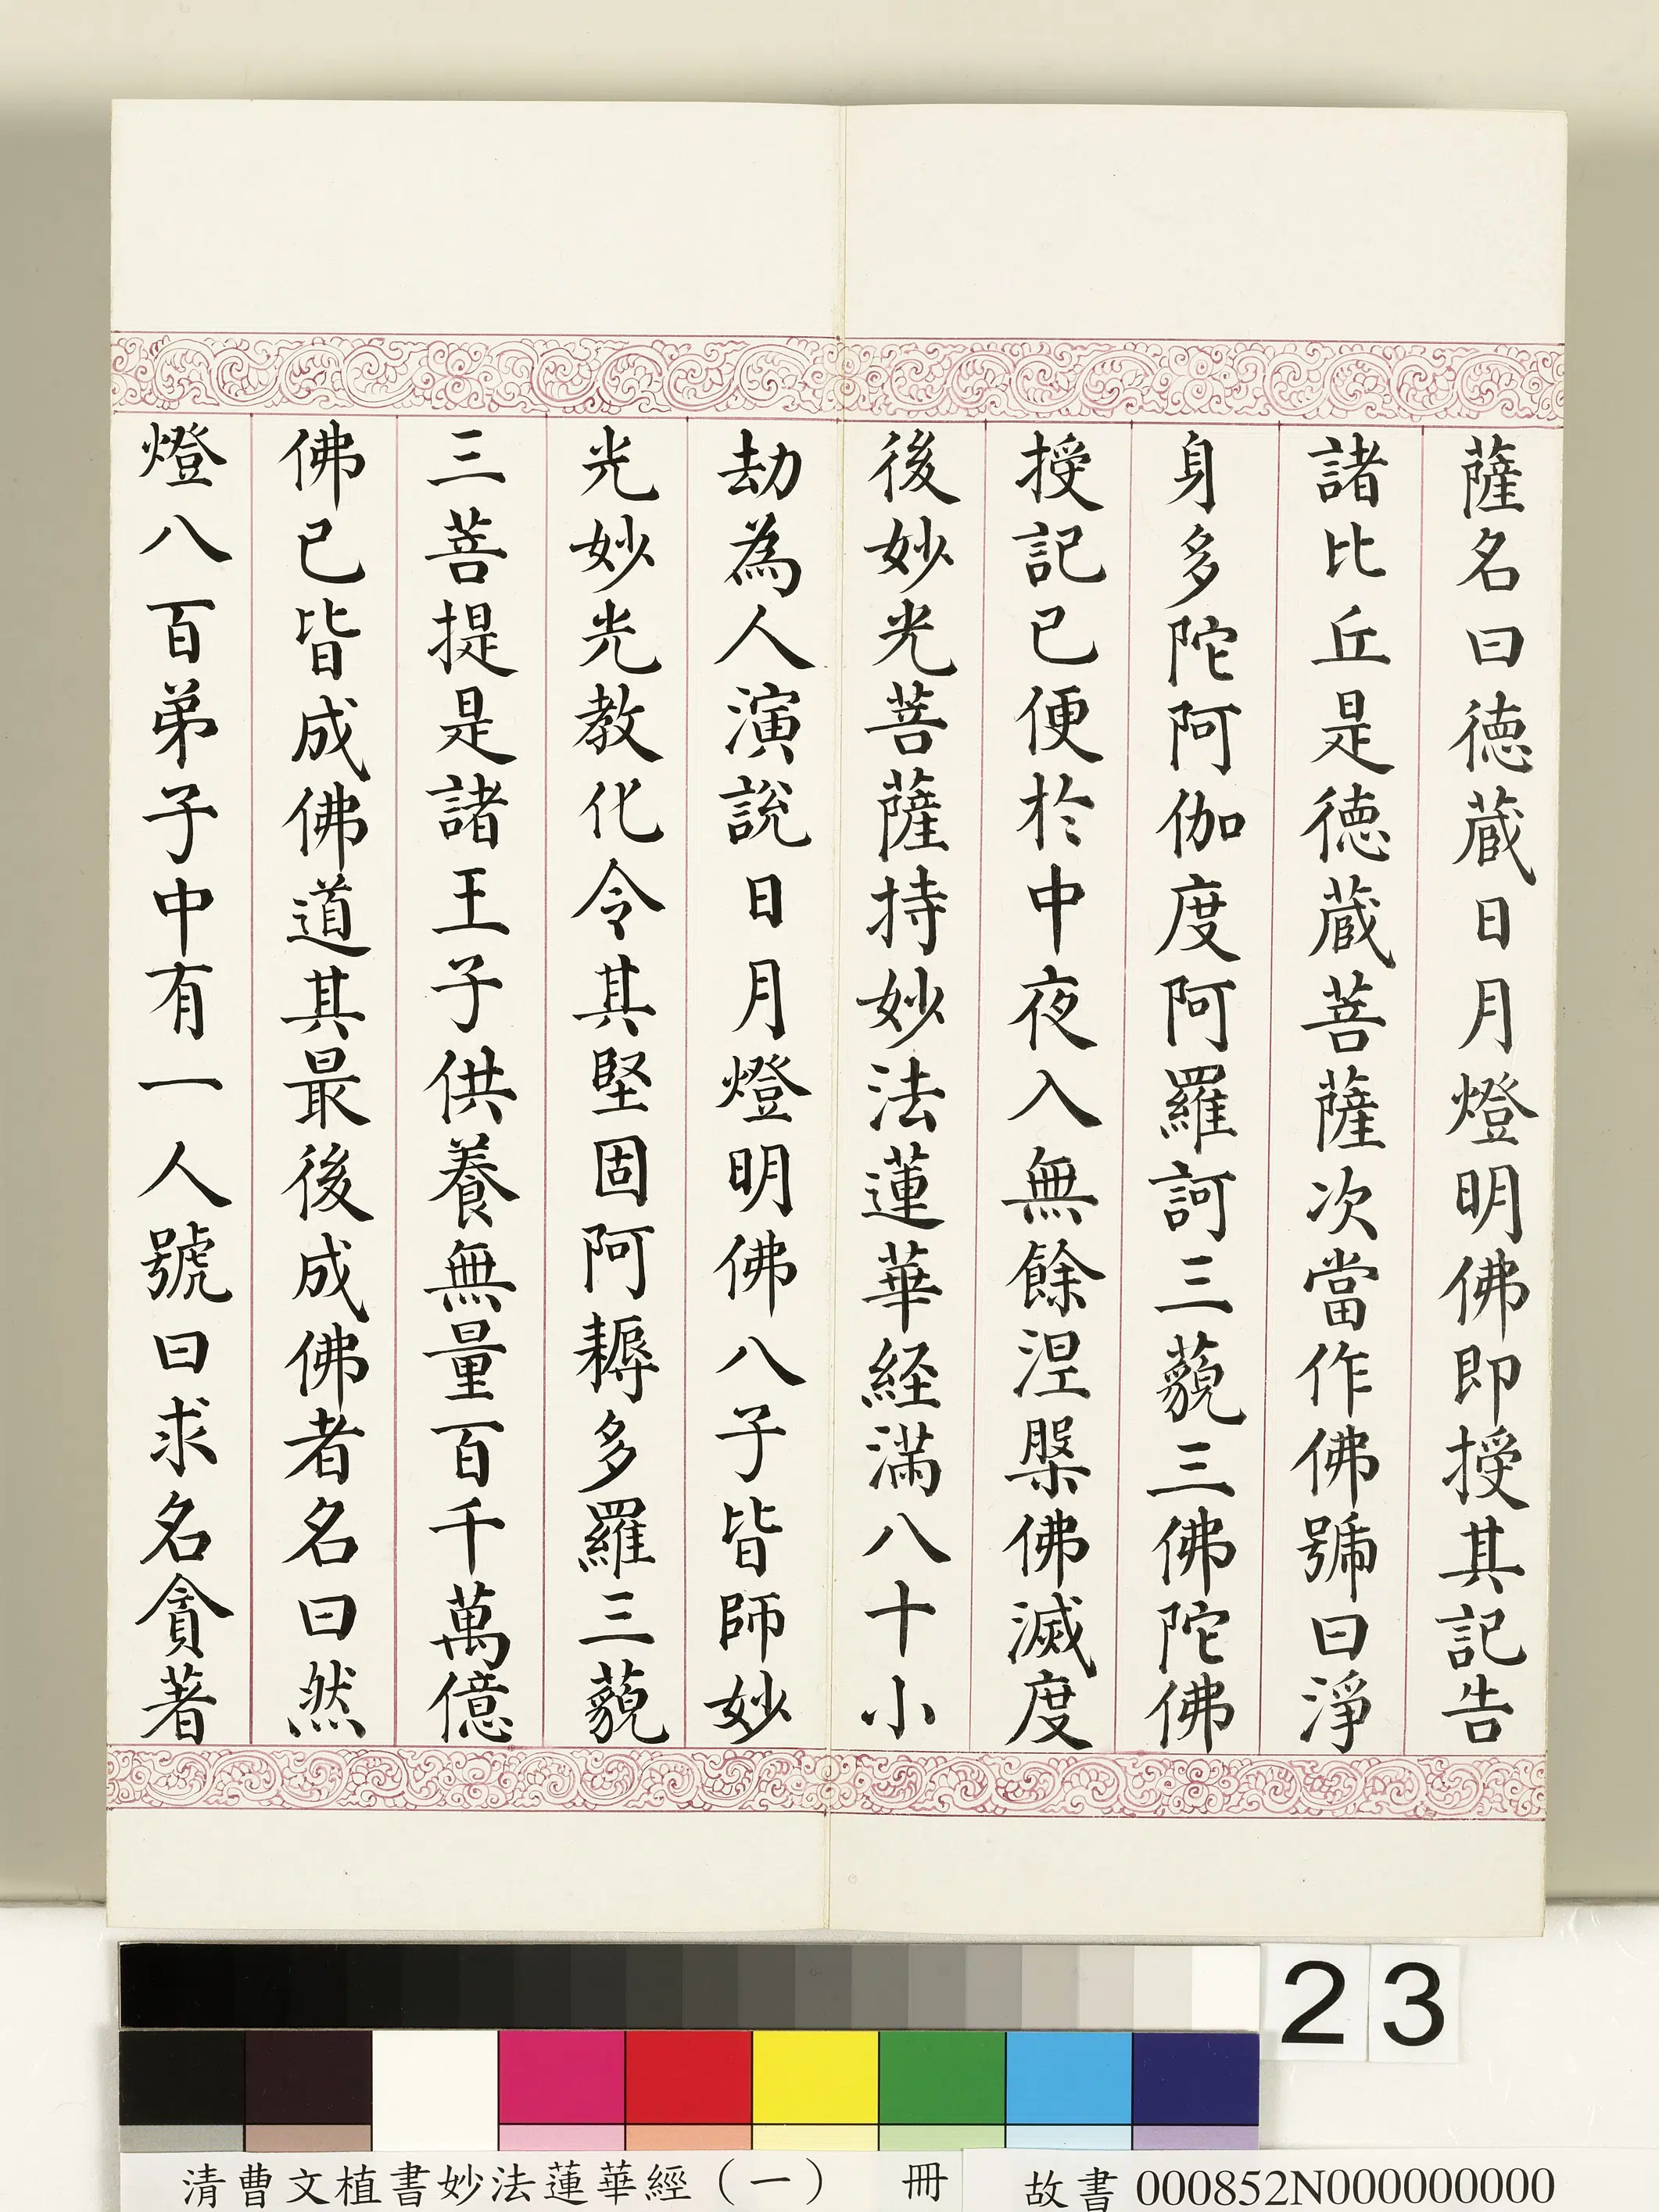 薩名曰德蔵日月燈明佛即授其記告
諸比丘是德蔵菩薩次當作佛號曰淨
身多陀阿伽度阿羅訶三藐三佛陀佛
授記已便於中夜入無餘涅槃佛滅度
後妙光菩薩持妙法蓮華経滿八十小
劫為人演說日月燈明佛八子皆師妙
光妙光教化令其堅固阿耨多羅三藐
三菩提是諸王子供養無量百千萬億
佛已皆成佛道其最後成佛者名曰然
燈八百弟子中有一人號曰求名貪著
23
清曹文植書妙法蓮華經（一） 冊 故書 000852N000000000